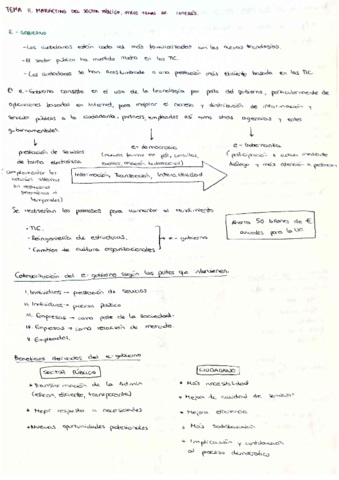 TEMA 11. MARKETING DEL SECTOR PÚBLICO, OTROS TEMAS DE INTERÉS.
E - GOBIERNO
- Los ciudadanos están cada vez más familiarizados con las nuevas tecnologías.
- El sector público ha invertido mucho en las TIC.
- Los ciudadanos se han acostumbrado a una prestación más eficiente basada en las TIC.
El e-Gobierno consiste en el uso de la tecnología por parte del gobierno, particularmente de
aplicaciones basadas en Internet, para mejorar el acceso y distribución de información y
servicios públicos a la ciudadanía, partners, empleados así como otras agencias y entes
gubernamentales.
prestación de servicios
de forma electrónica
e-democracia
e-Gobernanza
(complementar los
sin restricciones
geográficas ni
temporales)
Información, Transacción, Interactividad
Se rediseñan los procesos para aumentar el rendimiento
· TIC.
· Reingeniería de estructuras.
· Cambios de cultura organizacionales
→ e-gobierno
Ahorra 50 billones de €
anuales para la UE
Categorización del e-gobierno según las partes que intervienen.
I. Individuos → prestación de servicios
II. Individuos → proceso político
III. Empresas → como parte de la sociedad.
IV. Empresas → como relación de mercado.
V. Empleados.
Beneficios derivados del e-gobierno
SECTOR PÚBLICO
* Transformación de la Admin
(eficaz, eficiente, transparente)
* Mejor respuesta a necesidades
* Nuevas oportunidades profesionales
CIUDADANO
* Más accesibilidad
* Mejora de calidad de servicio
* Mejora eficiencia
* Más satisfacción
* Implicación y contribución
al proceso democrático